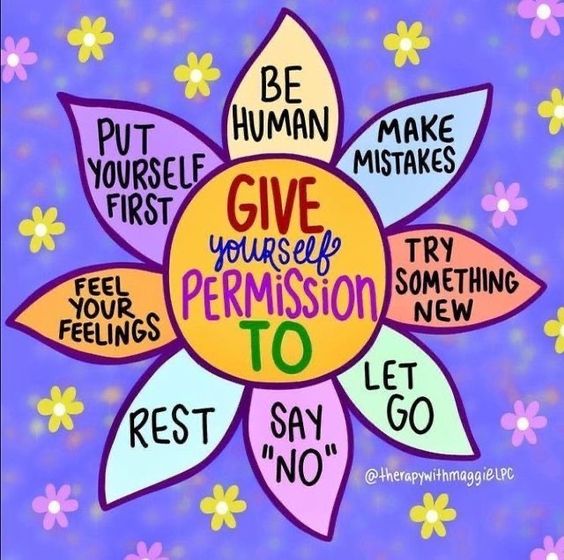 GIVE
yourself
PERMISSION
TO
BE
HUMAN
MAKE
MISTAKES
TRY
SOMETHING
NEW
LET
GO
SAY
"NO"
REST
FEEL
YOUR
FEELINGS
PUT
YOURSELF
FIRST
@therapywithmaggieLPC